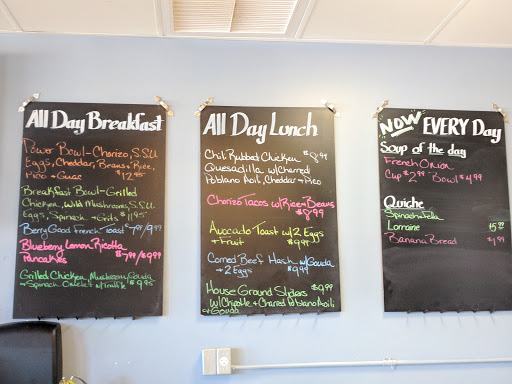 All Day Breakfast
Power Bowl-Chorizo, S.S.U
Eggs, Cheddar, Beans + Rice,
Pico + Guac $12.95
Breakfast Bowl-Grilled
Chicken, Wild Mushrooms, S.S.U
Eggs, Spinach + Grits $11.95
Berry Good French Toast $7.99/$9.99
Blueberry Lemon Ricotta
Pancakes $7.99/$9.99
Grilled Chicken, Mushroom, Gouda
+ Spinach Omelet w/Truffle $9.95
All Day Lunch
Chili Rubbed Chicken $8.99
Quesadilla w/Charred
Poblano Aoili, Cheddar + Pico
Chorizo Tacos w/Rice + Beans
$8.99
Avocado Toast w/2 Eggs
+ Fruit $9.99
Corned Beef Hash w/Gouda
+ 2 Eggs $9.99
House Ground Sliders $9.99
w/Chipotle + Charred Poblano Aoili
+ Gouda
NOW EVERY Day
Soup of the day
French Onion
Cup $2.99 Bowl $4.99
Quiche
Spinach + Feta
Lorraine $5.99
Banana Bread $1.99